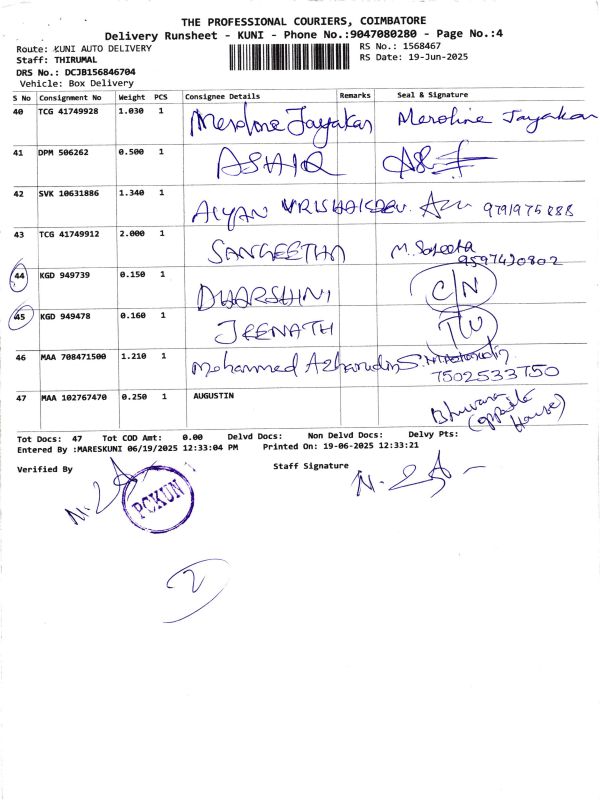 THE PROFESSIONAL COURIERS, COIMBATORE
Delivery Runsheet - KUNI - Phone No.:9047080280 - Page No.:4
Route: KUNI AUTO DELIVERY
RS No.: 1568467
Staff: THIRUMAL
RS Date: 19-Jun-2025
DRS No.: DCJB156846704
Vehicle: Box Delivery
S No Consignment No Weight PCS Consignee Details Remarks Seal & Signature
40 TCG 41749928 1.030 1 Meroline Jayakar Meroline Jayakar
41 DPM 506262 0.500 1 ASHIQ
42 SVK 10631886 1.340 1 AIYAN
43 TCG 41749912 2.000 1 SANGEETHA M. Sangeetha
9597430802
44 KGD 949739 0.150 1 DHARSHINI C/N
45 KGD 949478 0.160 1 JEENATH
46 MAA 708471500 1.210 1 Mohammed Azharudin
7502533750
47 MAA 102767470 0.250 1 AUGUSTIN Bhuvana
(opposite
House)
Tot Docs: 47 Tot COD Amt: 0.00 Delvd Docs: Non Delvd Docs: Delvy Pts:
Entered By :MARESKUNI 06/19/2025 12:33:04 PM Printed On: 19-06-2025 12:33:21
Verified By
Staff Signature
PCKUN
2